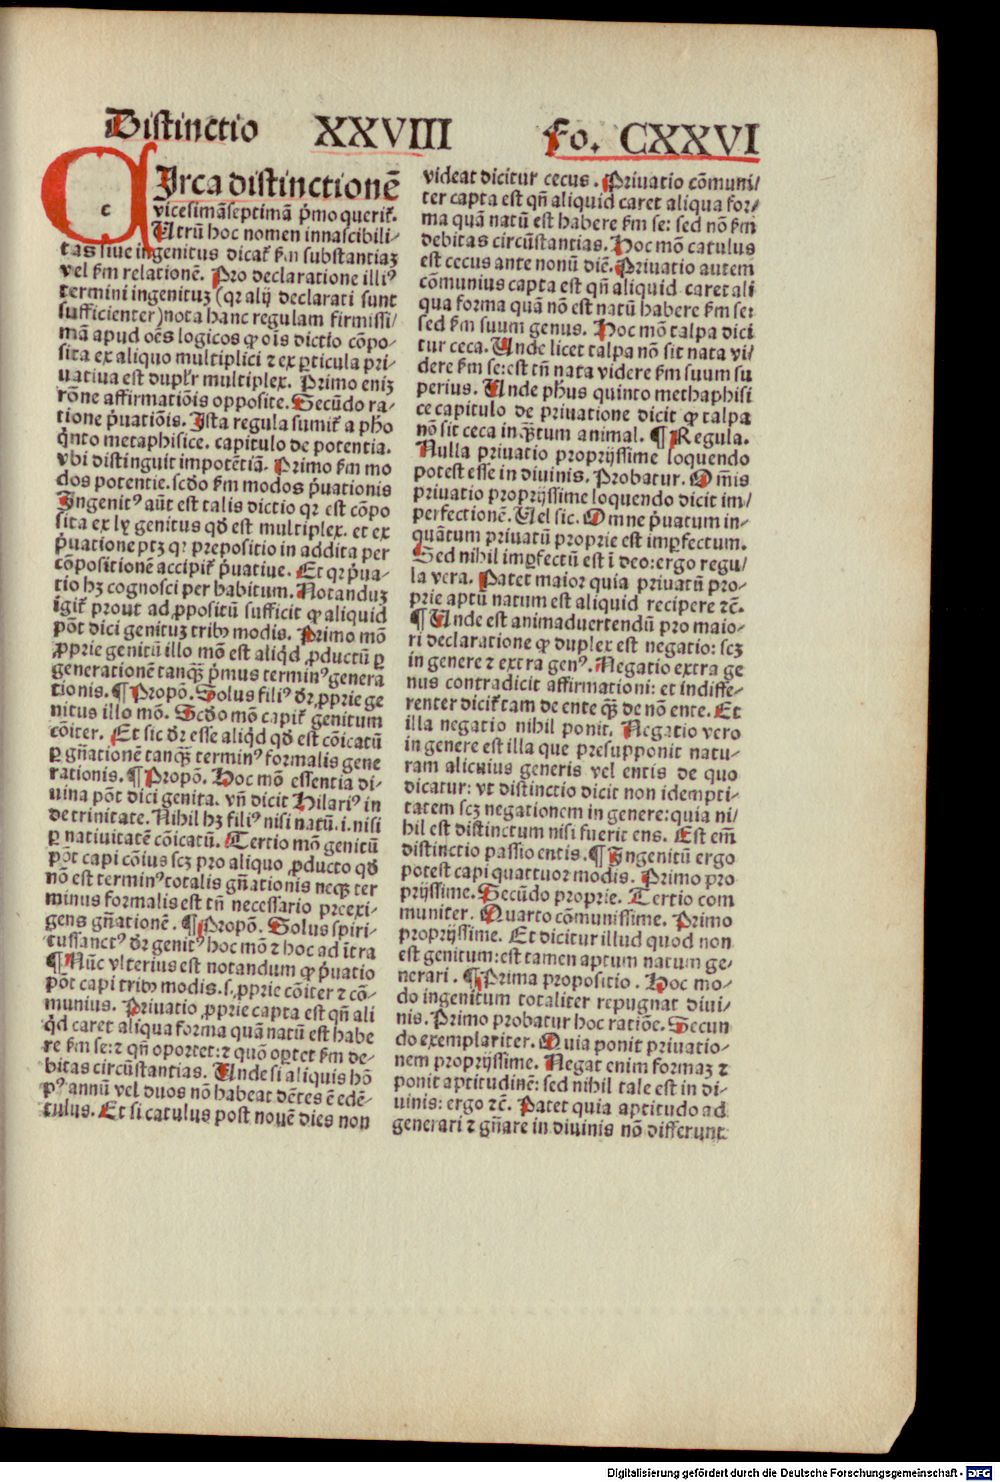 Distinctio XXVIII Fo. CXXVI
CIrca distinctionē
vicesimāseptimā p̄mo querit᷑.
Utrū hoc nomen innascibili-
tas siue ingenitus dicat᷑ ẜm substantiaꝫ
vel ẜm relationē. Pro declaratione illiꝰ
termini ingenituꝫ (qꝛ alij declarati sunt
sufficienter) nota hanc regulam firmissi/
mā apud oēs logicos ꝙ oīs dictio cōpo-
sita ex aliquo multiplici ⁊ ex ꝑticula pri-
uatiua est duplr̄ multiplex. Primo eniꝫ
rōne affirmatiōis opposite. Secūdo ra-
tione p̄uatiōis. Ista regula sumit᷑ a pħo
q̇nto metaphisice. capitulo de potentia.
vbi distinguit impotētiā. Primo ẜm mo
dos potentie. scḋo ẜm modos p̄uationis
Ingenitꝰ aūt est talis dictio qꝛ est cōpo
sita ex ly genitus qḋ est multiplex. et ex
p̄uatione ptꝫ qꝛ prepositio in addita per
cōpositionē accipit᷑ p̄uatiue. Et qꝛ p̄ua-
tio hꝫ cognosci per habitum. Notanduꝫ
igit᷑ prout ad ꝓpositū sufficit ꝙ aliquid
pōt dici genituꝫ tribꝰ modis. Primo mō
ꝓprie genitū illo mō est aliq̇d ꝓductū ꝑ
generationē tanqꝫ̄ p̄mus terminꝰ genera
tionis. ¶ Propō. Solus filiꝰ dr̄ ꝓprie ge
nitus illo mō. Scḋo mō capit᷑ genitum
cōiter. Et sic dr̄ esse aliq̇d qḋ est cōicatū
ꝑ gn̄ationē tanqꝫ̄ terminꝰ formalis gene
rationis. ¶ Propō. Hoc mō essentia di-
uina pōt dici genita. vn̄ dicit Hilariꝰ in
de trinitate. Nihil hꝫ filiꝰ nisi natū. i. nisi
ꝑ natiuitatē cōicatū. Tertio mō genitū
pōt capi cōius scꝫ pro aliquo ꝓducto qḋ
nō est terminꝰ totalis gn̄ationis neqꝫ ter
minus formalis est tn̄ necessario preexi-
gens gn̄ationē. ¶ Propō. Solus spiri-
tussanctꝰ dr̄ genitꝰ hoc mō ⁊ hoc ad ītra
¶ Nūc vlterius est notandum ꝙ p̄uatio
pōt capi tribꝰ modis. s. ꝓprie cōiter ⁊ cō-
munius. Priuatio ꝓprie capta est qn̄ ali
q̇d caret aliqua forma quā natū est habe
re ẜm se: ⁊ qn̄ oportet: ⁊ quō oꝑtet ẜm de-
bitas circūstantias. Unde si aliquis hō
pꝰ annū vel duos nō habeat dētes ē edē-
tulus. Et si catulus post nouē dies non
videat dicitur cecus. Priuatio cōmuni/
ter capta est qn̄ aliquid caret aliqua for-
ma quā natū est habere ẜm se: sed nō ẜm
debitas circūstantias. Hoc mō catulus
est cecus ante nonū diē. Priuatio autem
cōmunius capta est qn̄ aliquid caret ali
qua forma quā nō est natū habere ẜm se:
sed ẜm suum genus. Hoc mō talpa dici
tur ceca. Unde licet talpa nō sit nata vi/
dere ẜm se: est tn̄ nata videre ẜm suum su
perius. Unde pħus quinto methaphisi
ce capitulo de priuatione dicit ꝙ talpa
nō sit ceca in qꝫ̄tum animal. ¶ Regula.
Nulla priuatio proprijssime loquendo
potest esse in diuinis. Probatur. Om̄is
priuatio proprijssime loquendo dicit im/
perfectionē. Uel sic. Omne p̄uatum in-
quātum priuatū proprie est imꝑfectum.
Sed nihil imꝑfectū est ī deo: ergo regu/
la vera. Patet maior quia priuatū pro-
prie aptū natum est aliquid recipere ⁊c̄.
¶ Unde est animaduertendū pro maio-
ri declaratione ꝙ duplex est negatio: scꝫ
in genere ⁊ extra genꝰ. Negatio extra ge
nus contradicit affirmationi: et indiffe-
renter dicit᷑ tam de ente qꝫ̄ de nō ente. Et
illa negatio nihil ponit. Negatio vero
in genere est illa que presupponit natu-
ram alicuius generis vel entis de quo
dicatur: vt distinctio dicit non idempti-
tatem scꝫ negationem in genere: quia ni/
hil est distinctum nisi fuerit ens. Est em̄
distinctio passio entis. ¶ Ingenitū ergo
potest capi quattuor modis. Primo pro
prijssime. Secūdo proprie. Tertio com
muniter. Quarto cōmunissime. Primo
proprijssime. Et dicitur illud quod non
est genitum: est tamen aptum natum ge-
nerari. ¶ Prima propositio. Hoc mo-
do ingenitum totaliter repugnat diui/
nis. Primo probatur hoc ratiōe. Secun
do exemplariter. Quia ponit priuatio-
nem proprijssime. Negat enim formaꝫ ⁊
ponit aptitudinē: sed nihil tale est in di-
uinis: ergo ⁊c̄. Patet quia aptitudo ad
generari ⁊ gn̄are in diuinis nō differunt
Digitalisierung gefördert durch die Deutsche Forschungsgemeinschaft - DFG